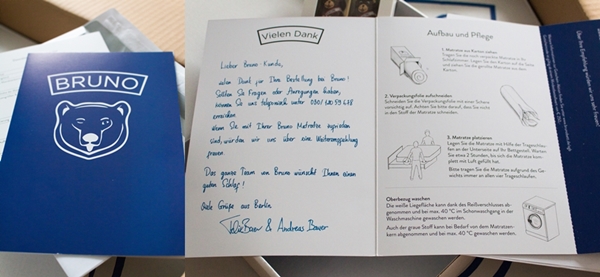 BRUNO
Vielen Dank
Lieber Bruno-Kunde,
vielen Dank für Ihre Bestellung bei Bruno!
Sollten Sie Fragen oder Anregungen haben,
können Sie uns telefonisch unter
erreichen.
Wenn Sie mit Ihrer Bruno Matratze zufrieden
sind, würden wir uns über eine Weiterempfehlung
freuen.
Das ganze Team von Bruno wünscht Ihnen einen
guten Schlaf!
Viele Grüße aus Berlin
& Andreas Bauer
Aufbau und Pflege
1. Matratze aus Karton ziehen
Tragen Sie die noch verpackte Matratze in Ihr
Schlafzimmer. Legen Sie den Karton auf die Seite
und ziehen Sie die gerollte Matratze aus dem
Karton.
2. Verpackungsfolie aufschneiden
Schneiden Sie die Verpackungsfolie mit einer Schere
vorsichtig auf. Achten Sie bitte darauf, dass Sie nicht
in den Stoff der Matratze schneiden.
3. Matratze platzieren
Legen Sie die Matratze mit Hilfe der Trageschlau-
fen an der Unterseite auf Ihr Bettgestell. Warten
Sie etwa 2 Stunden, bis sich die Matratze kom-
plett mit Luft gefüllt hat.
Bitte tragen Sie die Matratze aufgrund des Ge-
wichts immer an allen vier Trageschlaufen.
Oberbezug waschen
Die weiße Liegefläche kann dank des Reißverschlusses ab-
genommen und bei max. 40 °C im Schonwaschgang in der
Waschmaschine gewaschen werden.
Auch der graue Stoff kann bei Bedarf von dem Matratzen-
kern abgenommen und bei max. 40 °C gewaschen werden.